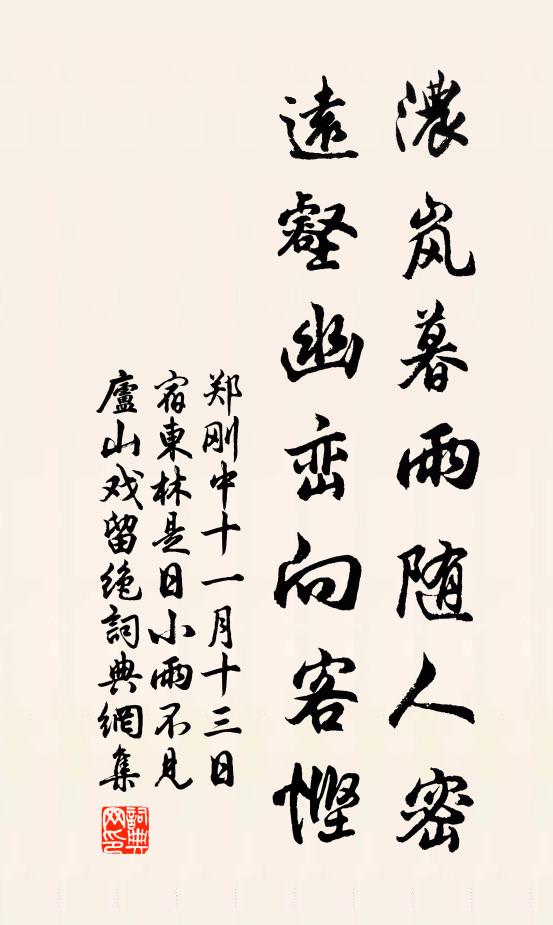 濃岚暮雨随人密
遠壑幽峦向客慳
郑刚中十一月十三日
宿東林是日小雨不見
廬山戏留绝詞典網集
詞典
网印